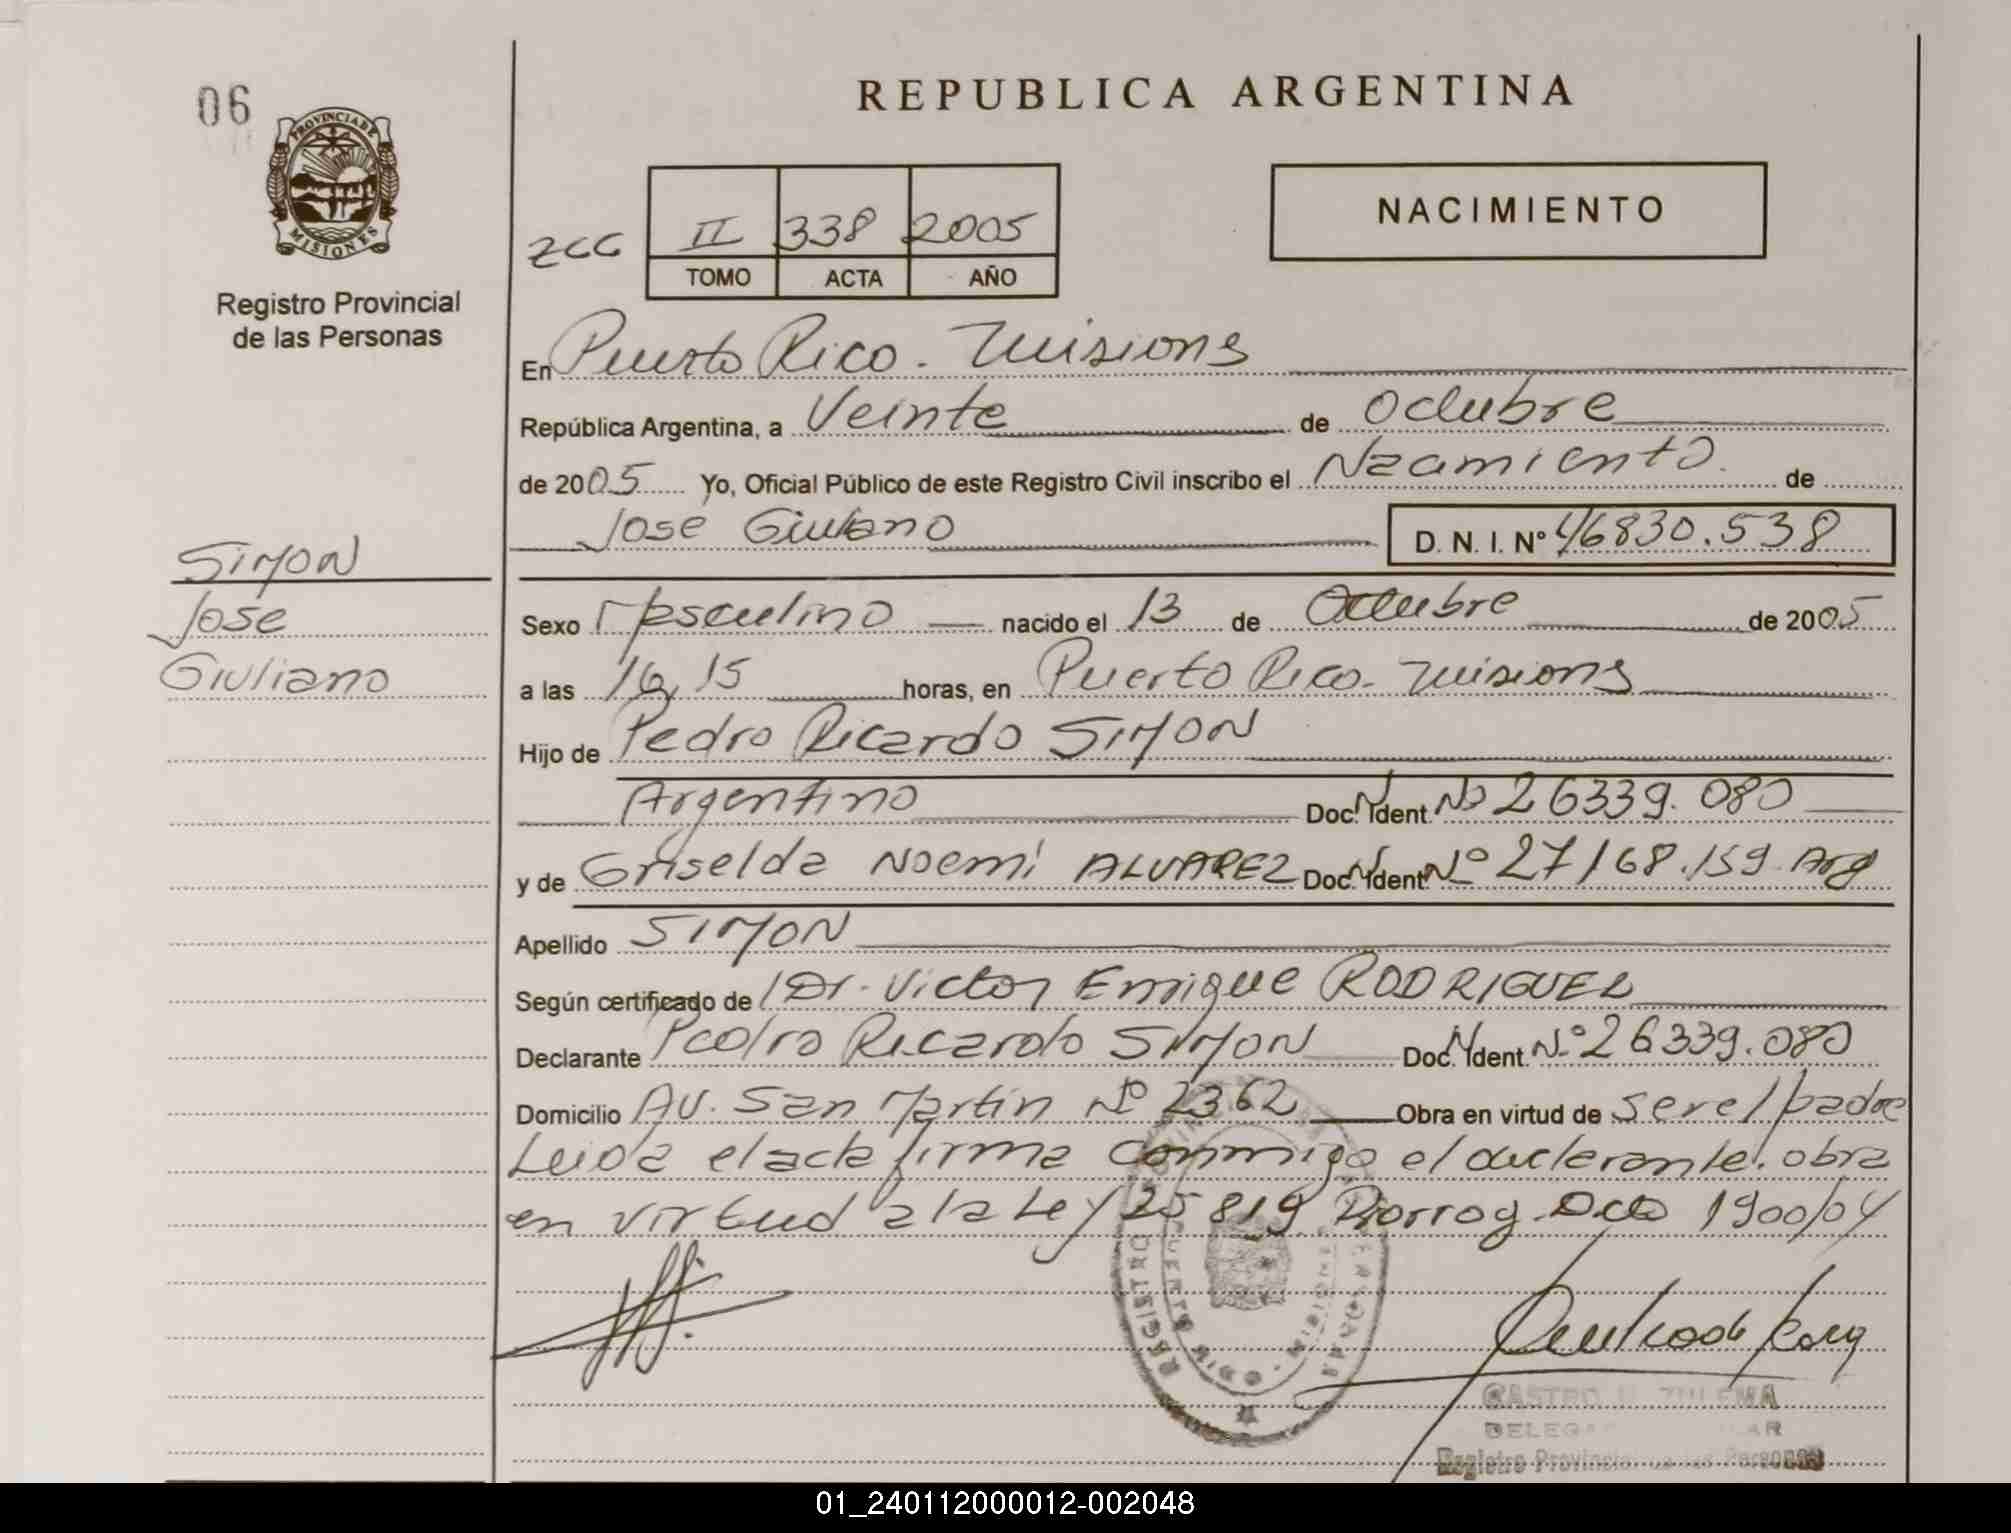 06
PROVINCIA DE
MISIONES
Registro Provincial
de las Personas
REPUBLICA ARGENTINA
NACIMIENTO
ZCG
II 338 2005
TOMO ACTA AÑO
En Puerto Rico. Misiones
República Argentina, a Veinte de Octubre
de 2005 Yo, Oficial Público de este Registro Civil inscribo el Nacimiento. de
José Giuliano D. N. I. Nº 46830.538
SIMON
Jose
Giuliano
Sexo Masculino nacido el 13 de Octubre de 2005
a las 16,15 horas, en Puerto Rico. Misiones
Hijo de Pedro Ricardo SIMON
Argentino Doc. Ident. Nº 26339.080
y de Griselda Noemí ALVAREZ Doc. Ident. Nº 27168.159. Arg
Apellido SIMON
Según certificado de Dr. Victor Enrique RODRIGUEZ
Declarante Pedro Ricardo SIMON Doc. Ident. Nº 26339.080
Domicilio AV. San Martín Nº 2362 Obra en virtud de ser el padre
Leida el acta firma conmigo el declarante. obra
en virtud a la Ley 25819. Prorrog. Dcto 1900/04
CASTRO ZULEMA
Registro Provincial de las Personas
01_240112000012-002048